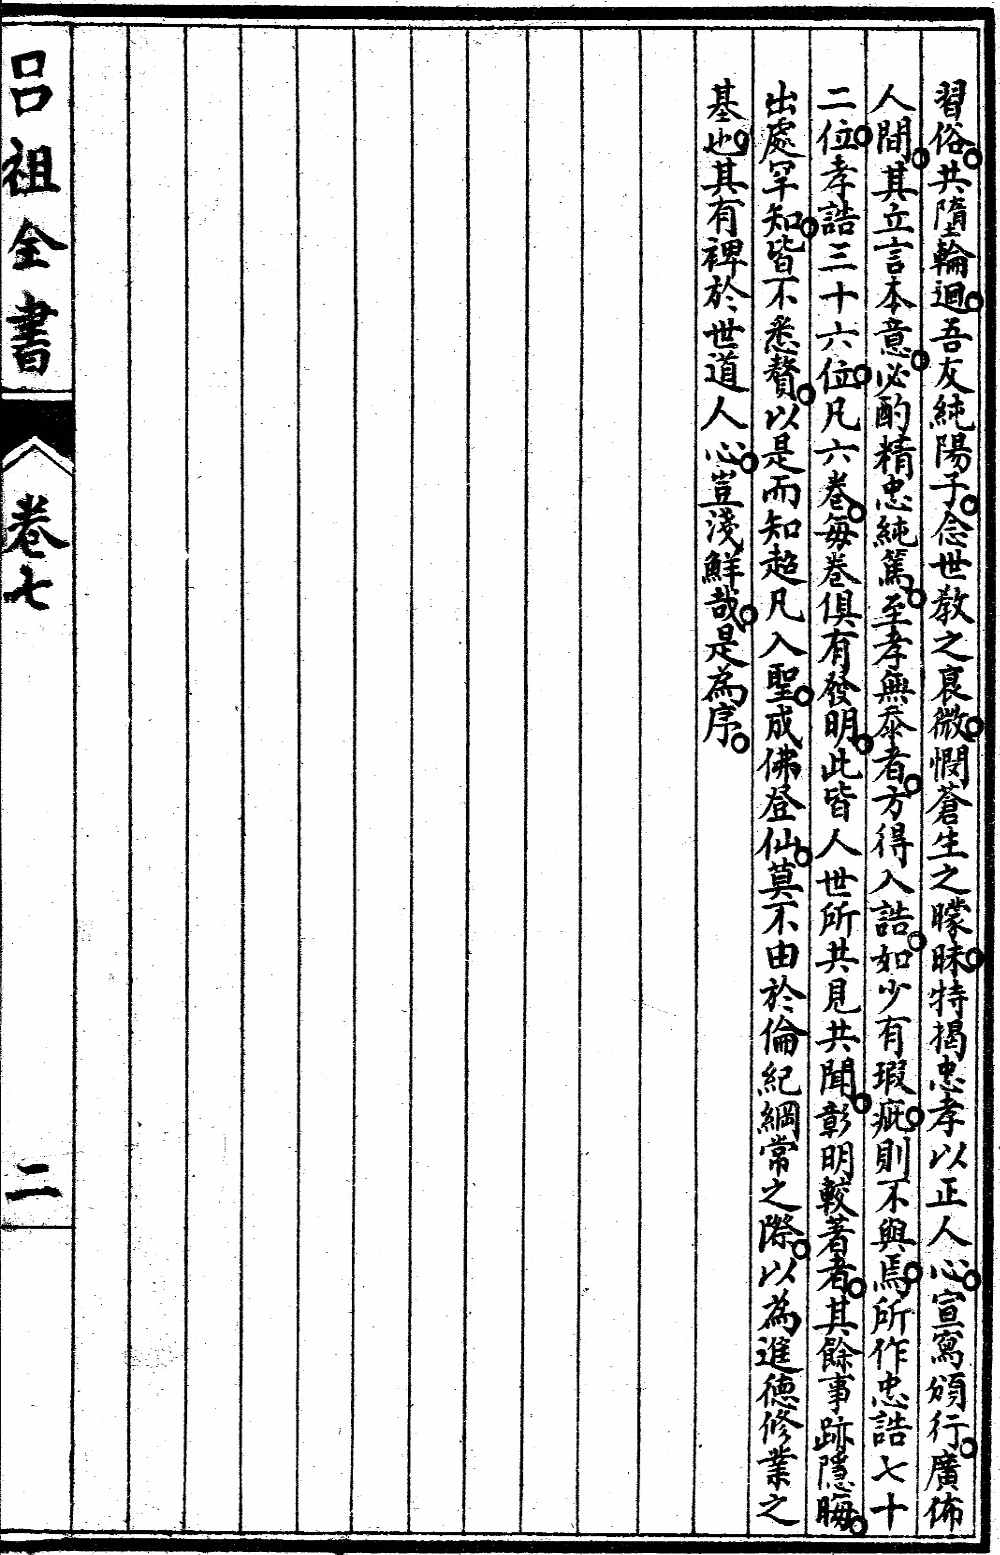 習俗。共墮輪迴。吾友純陽子。念世教之衰微。憫蒼生之矇昧。特揭忠孝以正人心。宣寫頒行。廣佈
人間。其立言本意。必酌精忠純篤。至孝無忝者。方得入誥。如少有瑕疵。則不與焉。所作忠誥七十
二位。孝誥三十六位。凡六卷。每卷俱有發明。此皆人世所共見共聞。彰明較著者。其餘事跡隱晦。
出處罕知。皆不悉贅。以是而知超凡入聖。成佛登仙。莫不由於倫紀綱常之際。以為進德修業之
基也。其有裨於世道人心。豈淺鮮哉。是為序。
呂祖全書
卷七
二